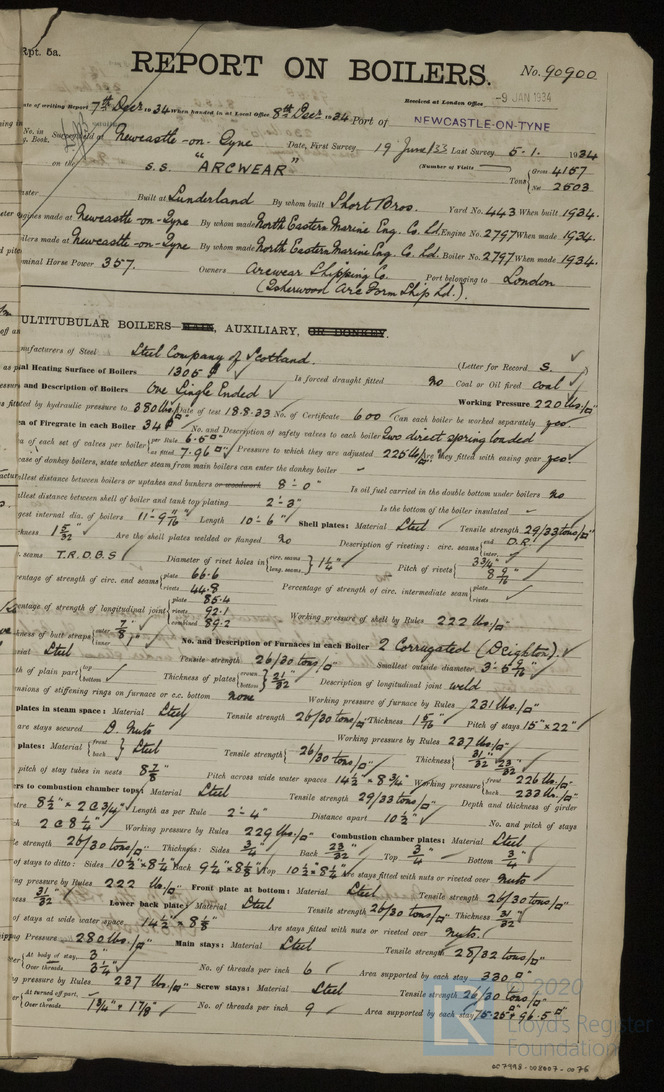 Rpt. 5a.
REPORT ON BOILERS.
No. 90900
Received at London Office -9 JAN 1934
ate of writing Report 7th Decr 1934 When handed in at Local Office 8th Decr 1934 Port of NEWCASTLE-ON-TYNE
No. in Survey held at Newcastle-on-Tyne Date, First Survey 19 June/33 Last Survey 5-1. 1934
g. Book.
on the S.S. "ARCWEAR" (Number of Visits) Tons { Gross 4157
Net 2503
Built at Sunderland By whom built Short Bros. Yard No. 443 When built 1934.
gines made at Newcastle-on-Tyne By whom made North Eastern Marine Eng. Co. Ld. Engine No. 2797 When made 1934.
ilers made at Newcastle-on-Tyne By whom made North Eastern Marine Eng. Co. Ld. Boiler No. 2797 When made 1934.
minal Horse Power 357. Owners Arcwear Shipping Co. Port belonging to London
(Isherwood Arc Form Ship Ld.).
ULTITUBULAR BOILERS—MAIN, AUXILIARY, OR DONKEY.
nufacturers of Steel Steel Company of Scotland. (Letter for Record S. )
al Heating Surface of Boilers 1305 Is forced draught fitted no Coal or Oil fired coal
and Description of Boilers One Single Ended Working Pressure 220 lbs/□"
fitted by hydraulic pressure to 380 lbs/□" Date of test 18.8.33 No. of Certificate 600 Can each boiler be worked separately yes
ea of Firegrate in each Boiler 34 No. and Description of safety valves to each boiler Two direct spring loaded
a of each set of valves per boiler { per Rule 6.5□"
as fitted 7.96□" Pressure to which they are adjusted 225 lb/□" Are they fitted with easing gear yes
ase of donkey boilers, state whether steam from main boilers can enter the donkey boiler
allest distance between boilers or uptakes and bunkers or woodwork 8'-0" Is oil fuel carried in the double bottom under boilers no
allest distance between shell of boiler and tank top plating 2'-3" Is the bottom of the boiler insulated -
gest internal dia. of boilers 11'-9 9/16" Length 10'-6" Shell plates: Material Steel Tensile strength 29/33 tons/□"
kness 1 5/32 Are the shell plates welded or flanged no Description of riveting: circ. seams { end D.R.
inter.
. seams T.R.D.B.S Diameter of rivet holes in { circ. seams
long. seams } 1 1/4" Pitch of rivets { 3 3/4"
8 9/16"
entage of strength of circ. end seams { plate 66.6
rivets 44.8 Percentage of strength of circ. intermediate seam { plate
rivets
centage of strength of longitudinal joint { plate 85.4
rivets 92.1
combined 89.2 Working pressure of shell by Rules 222 lbs/□"
kness of butt straps { outer 7/8"
inner 1" No. and Description of Furnaces in each Boiler 2 Corrugated (Deighton).
ial Steel Tensile strength 26/30 tons/□" Smallest outside diameter 3'-5 9/16"
th of plain part { top
bottom Thickness of plates { crown
bottom } 21/32" Description of longitudinal joint weld
nsions of stiffening rings on furnace or c.c. bottom none Working pressure of furnace by Rules 231 lbs/□"
plates in steam space: Material Steel Tensile strength 26/30 tons/□" Thickness 1 5/16" Pitch of stays 15" × 22"
are stays secured D. Nuts Working pressure by Rules 237 lbs/□"
plates: Material { front
back } Steel Tensile strength { 26/30 tons/□" Thickness { 31/32" 23/32"
pitch of stay tubes in nests 8 7/8" Pitch across wide water spaces 14 1/2" × 8 3/4" Working pressure { front 226 lbs/□"
back 233 lbs/□"
ers to combustion chamber tops: Material Steel Tensile strength 29/33 tons/□" Depth and thickness of girder
ntre 8 1/2" × 2 @ 3/4" Length as per Rule 2'-4" Distance apart 10 1/2" No. and pitch of stays
ch 2 @ 8 1/4" Working pressure by Rules 229 lbs/□" Combustion chamber plates: Material Steel
le strength 26/30 tons/□" Thickness: Sides 3/4" Back 23/32" Top 3/4" Bottom 3/4"
of stays to ditto: Sides 10 1/2" × 8 1/4" Back 9 1/4" × 8 1/8" Top 10 1/2" × 8 1/4" Are stays fitted with nuts or riveted over nuts
ng pressure by Rules 222 lb/□" Front plate at bottom: Material Steel Tensile strength 26/30 tons/□"
ess 31/32" Lower back plate: Material Steel Tensile strength 26/30 tons/□" Thickness 31/32"
of stays at wide water space 14 1/2" × 8 1/8" Are stays fitted with nuts or riveted over nuts.
Pressure 280 lbs/□" Main stays: Material Steel Tensile strength 28/32 tons/□"
{ At body of stay, 3"
Over threads 3 1/4" No. of threads per inch 6 Area supported by each stay 330□"
g pressure by Rules 237 lbs/□" Screw stays: Material Steel Tensile strength 26/30 tons/□"
{ At turned off part,
Over threads 1 3/4" & 1 7/8" No. of threads per inch 9 Area supported by each stay 75.25□" & 96.5□"
© 2020
LR
Lloyd's Register
Foundation
007998-008007-0076